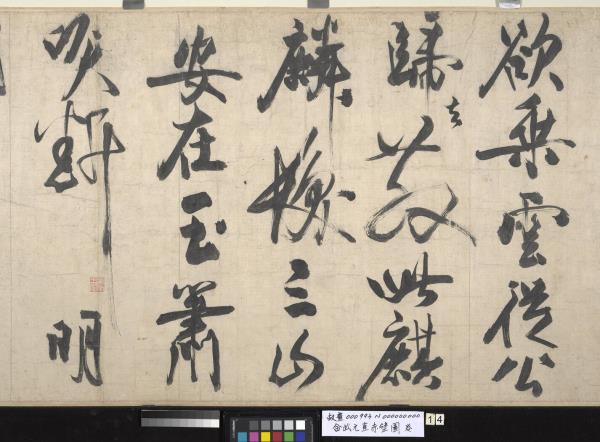 欲乘雲從公
歸去散此麒
麟髮三山
安在玉簫
吹斷明
故畫000994N000000000
金武元直赤壁圖 卷
14